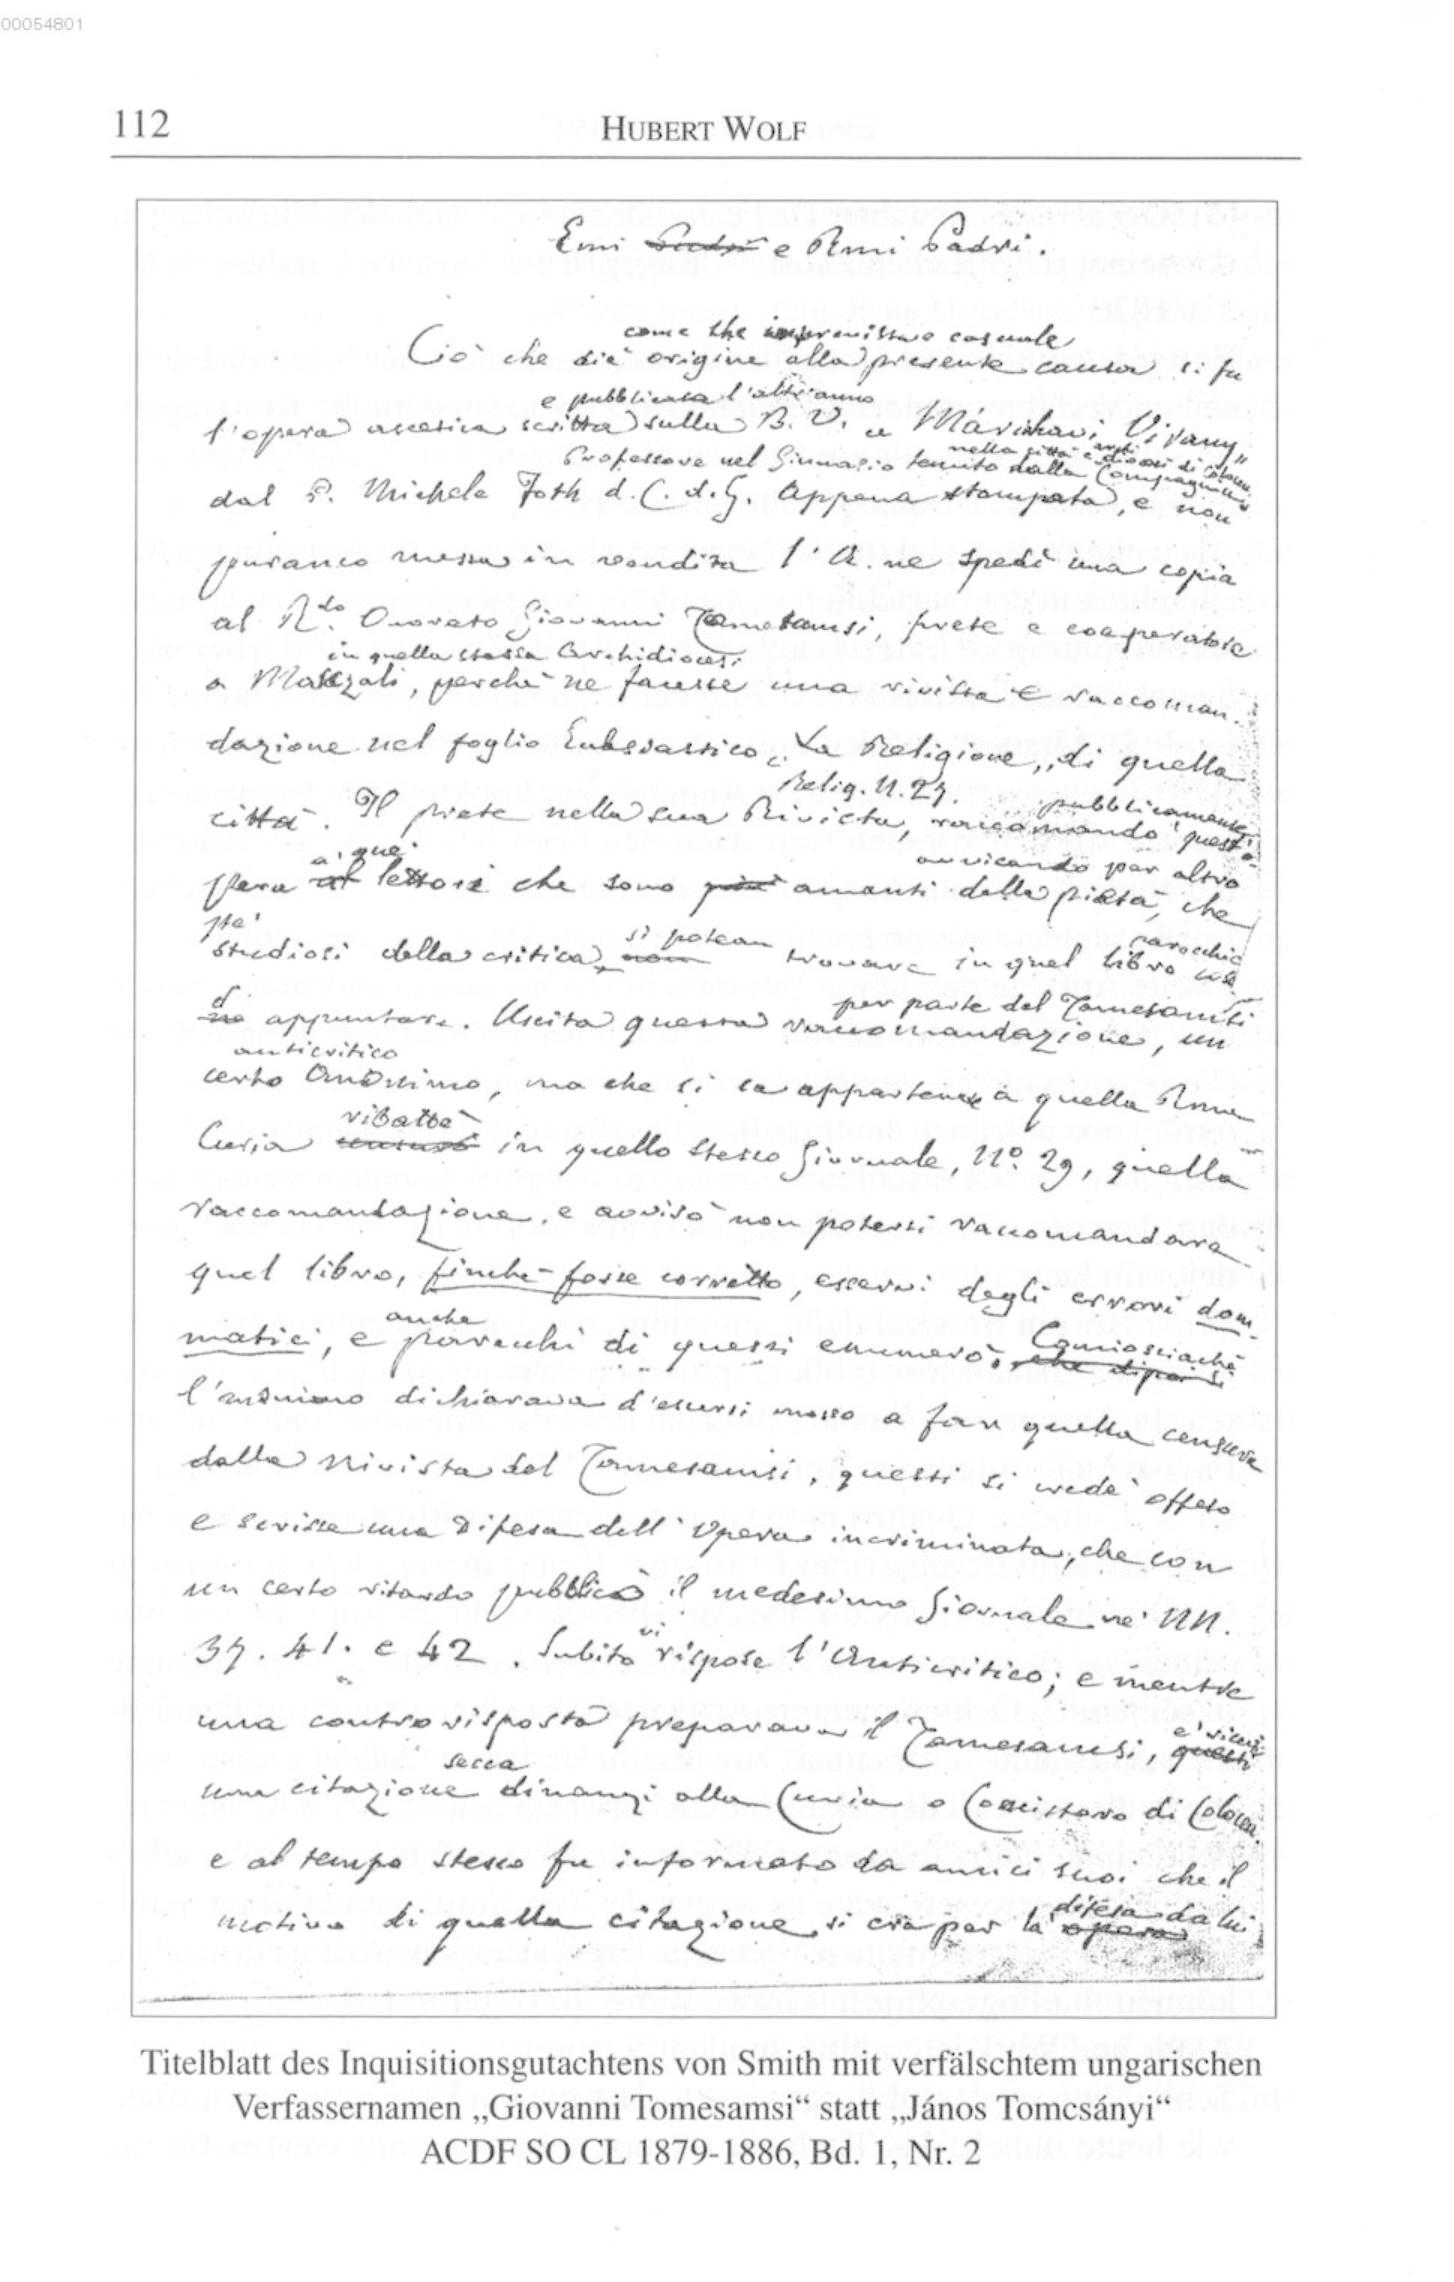 00054801
112
HUBERT WOLF
Emi Padri e Rmi Padri.
come che improvvisa casuale
Ciò che diè origine alla presente causa si fu
e pubblicata l'altr'anno
l'opera ascetica scritta sulla B. V. „Máriskavi Virany„
nella città e arcidiocesi di Coloc.
Professore nel Ginnasio tenuto dalla Compagnia
dal P. Michele Toth d. C. d. G. Appena stampata, e non
puranco messa in vendita l'A. ne spedì una copia
al R.do Onorato Giovanni Tomesamsi, prete e cooperatore
in quella stessa Archidiocesi
a , perchè ne facesse una rivista e raccoman-
dazione nel foglio „La Religione„ di quella
Relig. N. 27. pubblicamente
città. Il prete nella sua Rivista, raccomandò quest'o-
a' que' avvisando per altro
pera al lettori che sono più amanti della pietà, che
si potean parecchie
studiosi della critica, non trovare in quel libro cose
d per parte del Tomesamsi
ne appuntare. Uscita questa raccomandazione, un
anticritico
certo Anonimo, ma che si sa appartenere a quella Rma
ribattè
Curia censurò in quello stesso Giornale, No. 29, quella
raccomandazione, e avvisò non potersi raccomandare
quel libro, finchè fosse corretto, esservi degli errori dom-
anche Conciosiachè
matici, e parecchi di questi enumerò. che dipoi si
l'anonimo dichiarava d'essersi mosso a far quella censura
dalla rivista del Tomesamsi, questi si credè offeso
e scrisse una difesa dell'opera incriminata, che con
un certo ritardo pubblicò il medesimo Giornale ne' NN.
37. 41. e 42. Subito vi rispose l'Anticritico; e mentre
e' ricevè
una controrisposta preparava il Tomesamsi, questi
secca
una citazione dinanzi alla Curia o Concistoro di Coloca.
e al tempo stesso fu informato da amici suoi che il
difesa da lui
motivo di quella citazione si era per la opera
Titelblatt des Inquisitionsgutachtens von Smith mit verfälschtem ungarischen
Verfassernamen „Giovanni Tomesamsi“ statt „János Tomcsányi“
ACDF SO CL 1879-1886, Bd. 1, Nr. 2